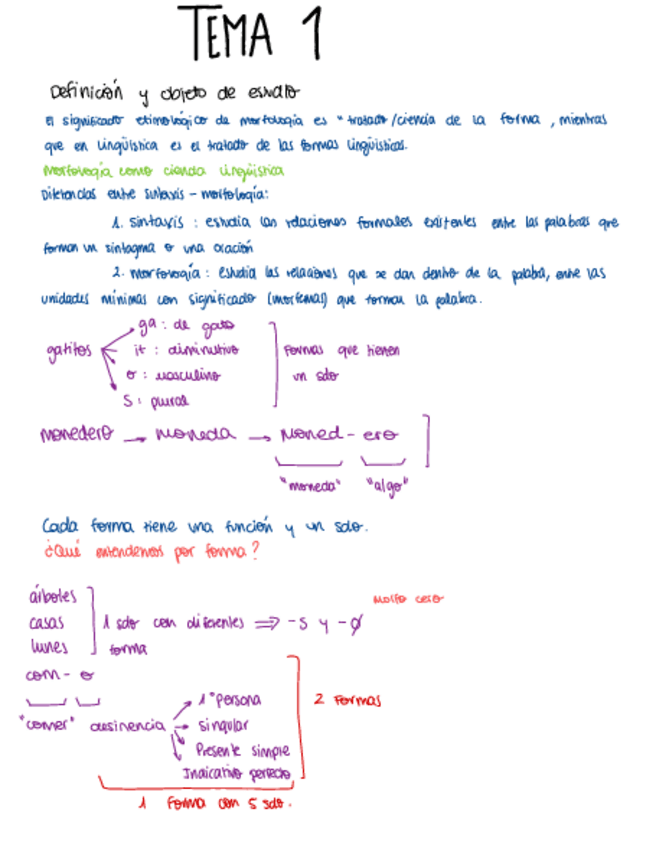 TEMA 1
Definición y objeto de estudio
El significado etimológico de morfología es "tratado/ciencia de la forma, mientras
que en lingüística es el tratado de las formas lingüísticas.
Morfología como ciencia lingüística
Diferencias entre sintaxis - morfología:
1. Sintaxis : estudia las relaciones formales existentes entre las palabras que
forman un sintagma o una oración
2. Morfología : estudia las relaciones que se dan dentro de la palabra, entre las
unidades mínimas con significado (morfemas) que forman la palabra.
gatitos
ga : de gato
it : diminutivo
o : masculino
S : plural
Formas que tienen
un sdo
monedero → moneda → Moned - ero
"moneda" "algo"
Cada forma tiene una función y un sdo.
¿Qué entendemos por forma?
árboles
casas
lunes
1 sdo con diferentes ⇒ -s y -∅
forma
Morfo cero
com - o
"comer" desinencia
1ª persona
singular
Presente simple
Indicativo perfecto
2 Formas
1 Forma con 5 sdo.